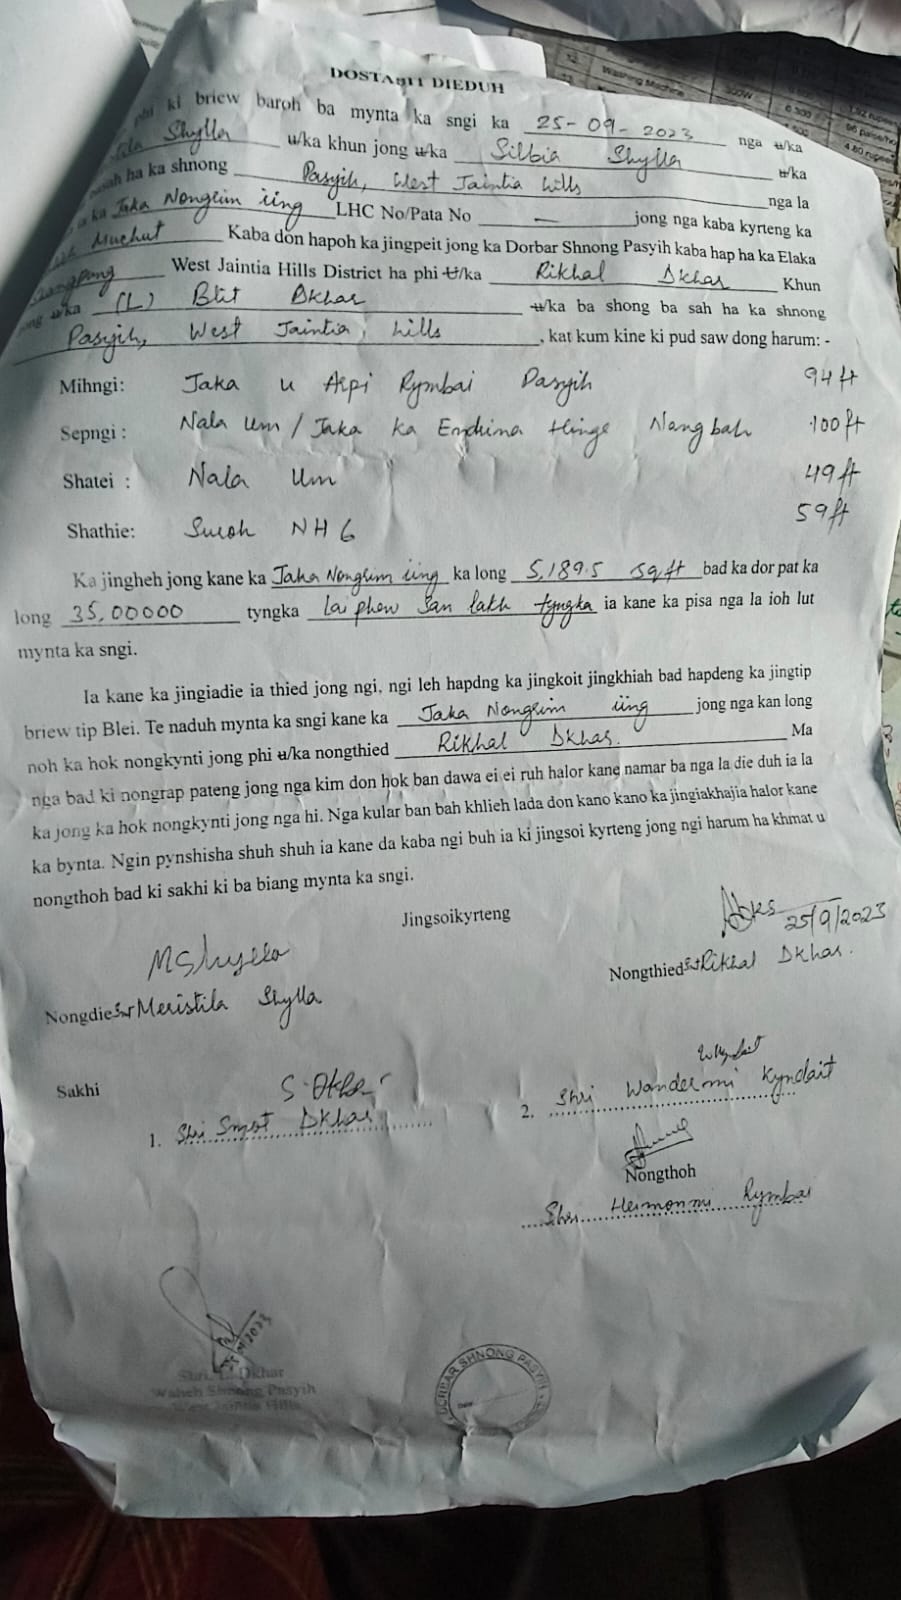 DOSTABIT DIEDUH
phi ki briew baroh ba mynta ka sngi ka 25-09-2023 nga u/ka
Shylla u/ka khun jong u/ka Silbia Shylla u/ka
ha ka shnong Pasyih, West Jaintia hills nga la
ka Jaka Nongrim iing LHC No/Pata No — jong nga kaba kyrteng ka
Muchut Kaba don hapoh ka jingpeit jong ka Dorbar Shnong Pasyih kaba hap ha ka Elaka
Shangpung West Jaintia Hills District ha phi u/ka Rikhal Dkhar Khun
jong u/ka (L) Blit Dkhar u/ka ba shong ba sah ha ka shnong
Pasyih, West Jaintia, hills, kat kum kine ki pud saw dong harum: -
Mihngi: Jaka u Arpi Rymbai Pasyih 94 ft
Sepngi : Nala Um / Jaka ka Hinge Nangbah 100 ft
Shatei : Nala Um 49 ft
Shathie: Surok NH 6 59 ft
Ka jingheh jong kane ka Jaka Nongrim iing ka long 5,189.5 sq ft bad ka dor pat ka
long 35,00000 tyngka lai phew san lakh tyngka ia kane ka pisa nga la ioh lut
mynta ka sngi.
Ia kane ka jingiadie ia thied jong ngi, ngi leh hapdng ka jingkoit jingkhiah bad hapdeng ka jingtip
briew tip Blei. Te naduh mynta ka sngi kane ka Jaka Nongrim iing jong nga kan long
noh ka hok nongkynti jong phi u/ka nongthied Rikhal Dkhar. Ma
nga bad ki nongrap pateng jong nga kim don hok ban dawa ei ei ruh halor kane namar ba nga la die duh ia la
ka jong ka hok nongkynti jong nga hi. Nga kular ban bah khlieh lada don kano kano ka jingiakhajia halor kane
ka bynta. Ngin pynshisha shuh shuh ia kane da kaba ngi buh ia ki jingsoi kyrteng jong ngi harum ha khmat u
nongthoh bad ki sakhi ki ba biang mynta ka sngi.
Jingsoikyrteng
25/9/2023
MShylla
Nongthied Rikhal Dkhar.
Nongdie Meristila Shylla
Sakhi
1. Shri Dkhar
2. Shri Wandermi Kyndait
Nongthoh
Shri Heimonmi Rymbai
Shri. L. Dkhar
Waheh Shnong Pasyih
West Jaintia Hills
DORBAR SHNONG PASYIH